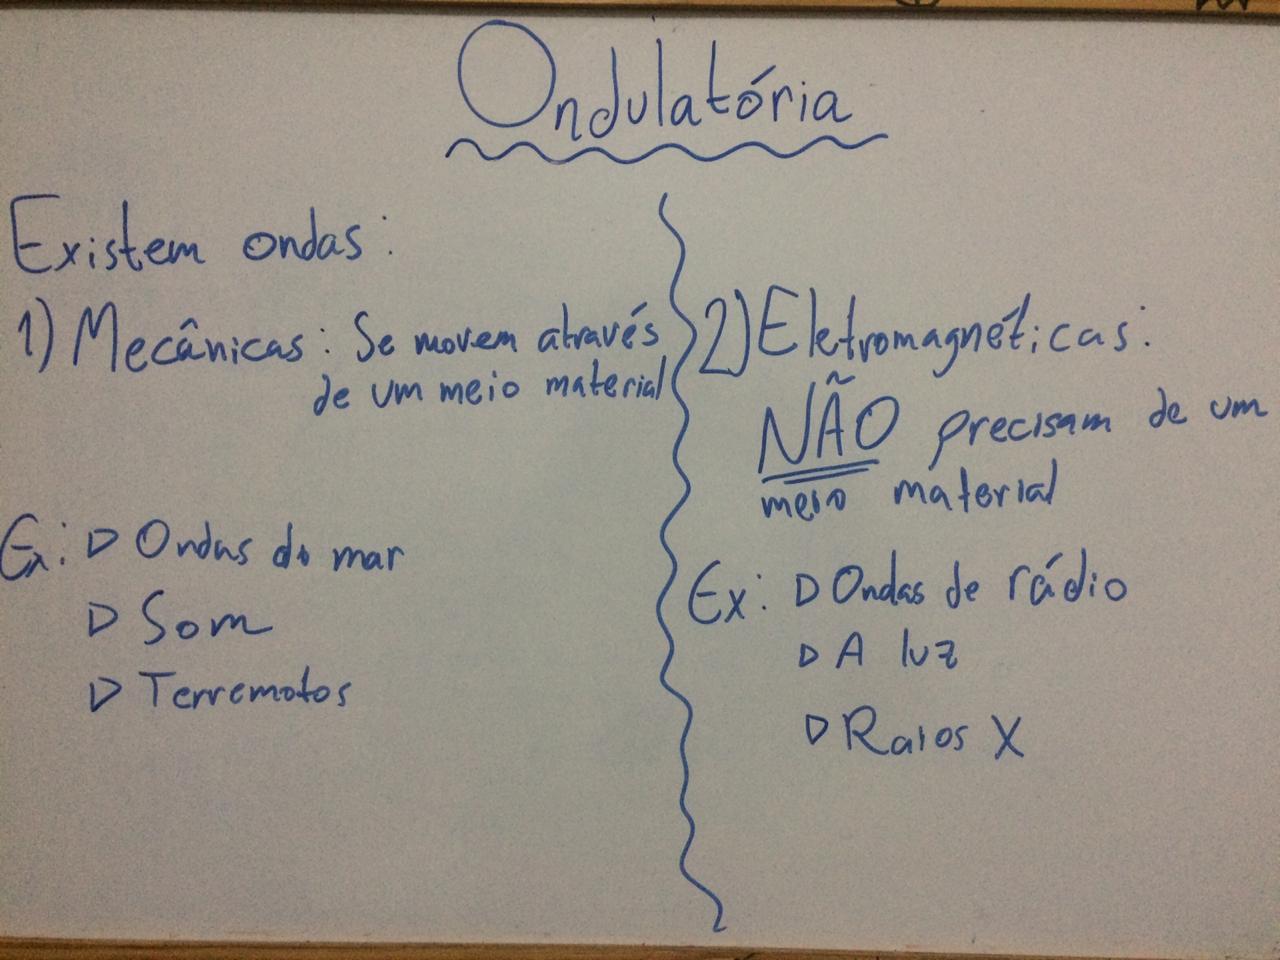 Ondulatória
Existem ondas:
1) Mecânicas: Se movem através
de um meio material
Ex: ▷ Ondas do mar
▷ Som
▷ Terremotos
2) Eletromagnéticas:
NÃO precisam de um
meio material
Ex: ▷ Ondas de rádio
▷ A luz
▷ Raios X